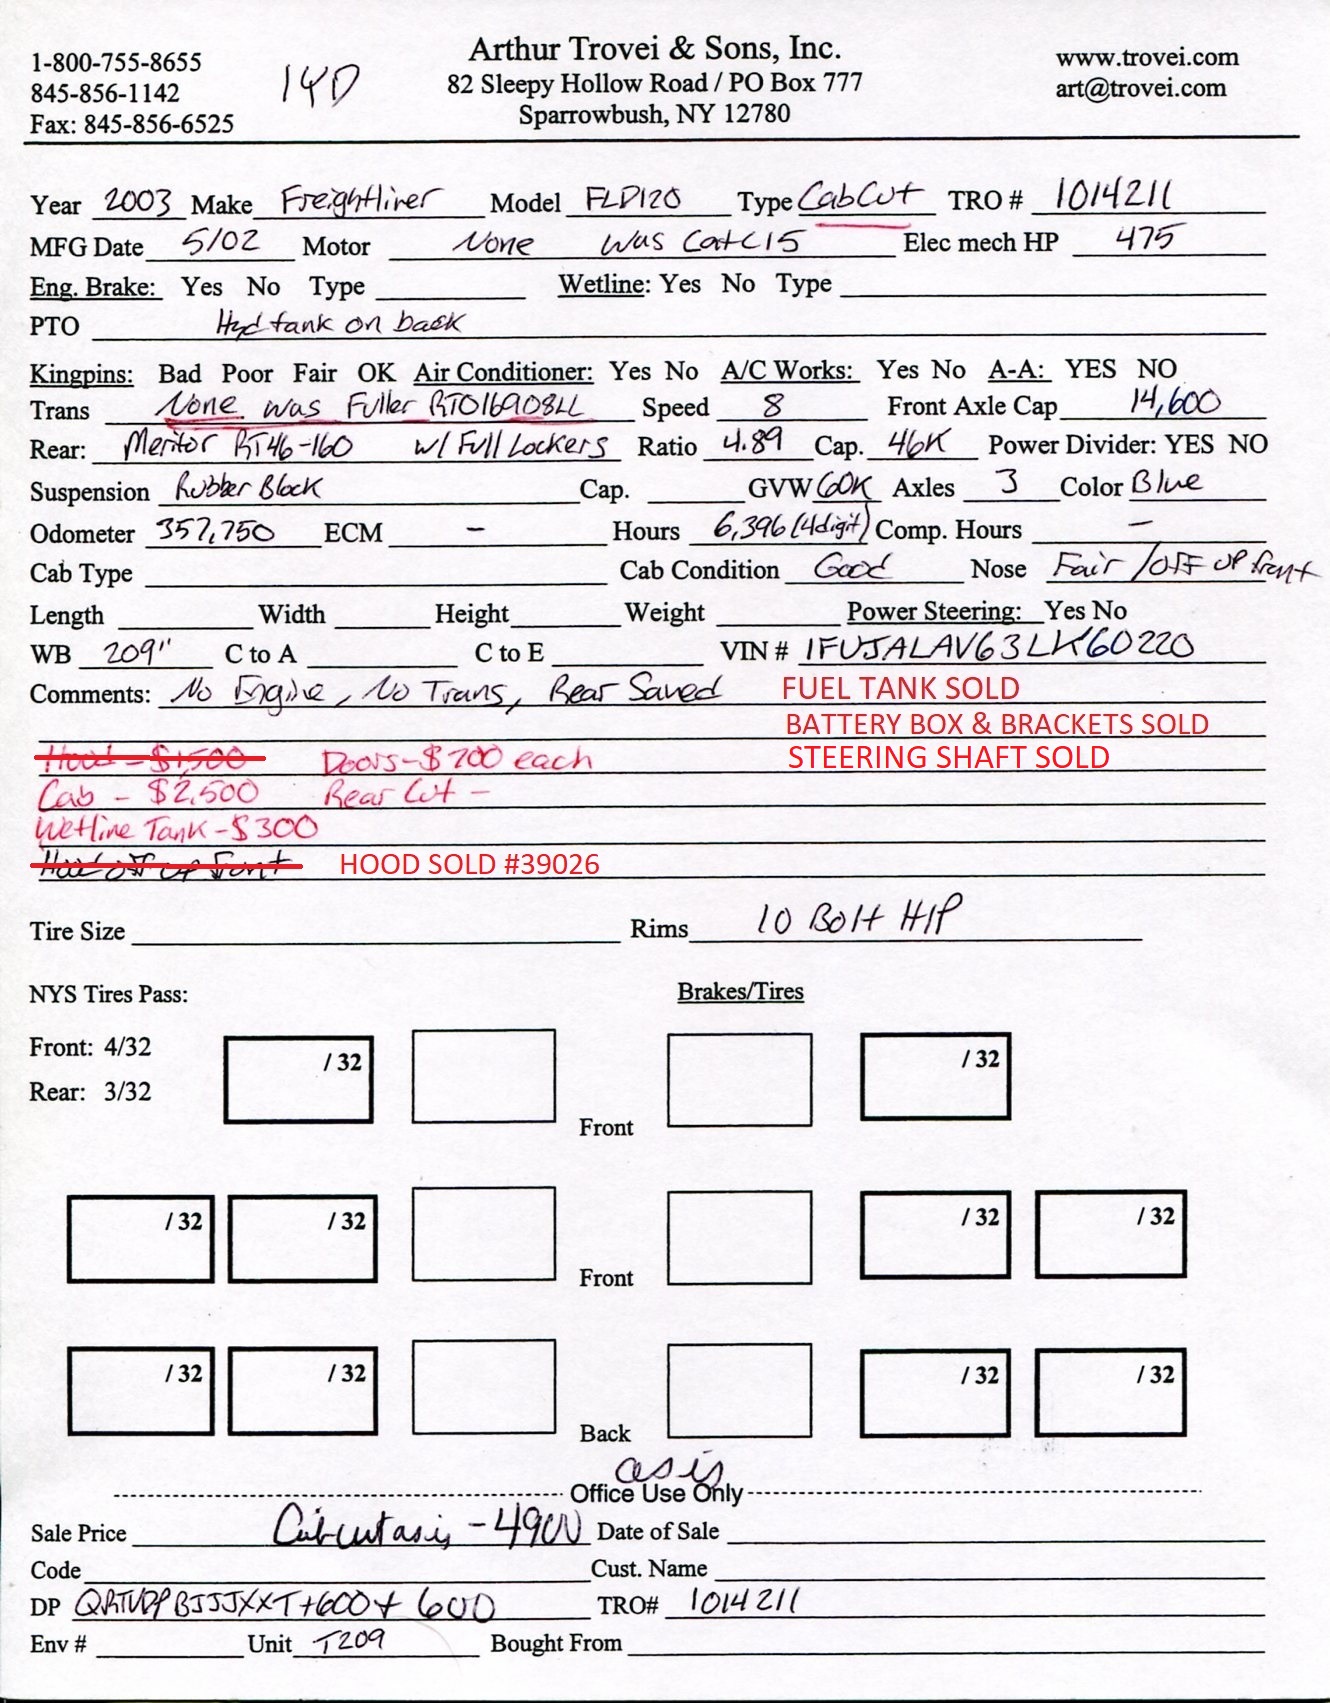 Arthur Trovei & Sons, Inc.
1-800-755-8655 www.trovei.com
845-856-1142 14D 82 Sleepy Hollow Road / PO Box 777 art@trovei.com
Fax: 845-856-6525 Sparrowbush, NY 12780
Year 2003 Make Freightliner Model FLD120 Type Cab Cut TRO # 1014211
MFG Date 5/02 Motor None Was Cat C15 Elec mech HP 475
Eng. Brake: Yes No Type Wetline: Yes No Type
PTO Hyd tank on back
Kingpins: Bad Poor Fair OK Air Conditioner: Yes No A/C Works: Yes No A-A: YES NO
Trans None was Fuller RTO16908LL Speed 8 Front Axle Cap 14,600
Rear: Meritor RT46-160 w/ Full Lockers Ratio 4.89 Cap. 46K Power Divider: YES NO
Suspension Rubber Block Cap. GVW 60K Axles 3 Color Blue
Odometer 357,750 ECM - Hours 6,396 (4 digit) Comp. Hours -
Cab Type Cab Condition Good Nose Fair / Off up front
Length Width Height Weight Power Steering: Yes No
WB 209" C to A C to E VIN # 1FUJALAV63LK60220
Comments: No Engine, No Trans, Rear Saved FUEL TANK SOLD
BATTERY BOX & BRACKETS SOLD
Hood - $1,500 Doors - $200 each STEERING SHAFT SOLD
Cab - $2,500 Rear Cut -
Wetline Tank - $300
Hood off up front HOOD SOLD #39026
Tire Size Rims 10 Bolt H/P
NYS Tires Pass: Brakes/Tires
Front: 4/32 / 32 / 32
Rear: 3/32
Front
/ 32 / 32 / 32 / 32
Front
/ 32 / 32 / 32 / 32
Back
as is
Office Use Only
Sale Price Cab cut as is - 4900 Date of Sale
Code Cust. Name
DP TRO# 1014211
Env # Unit T209 Bought From